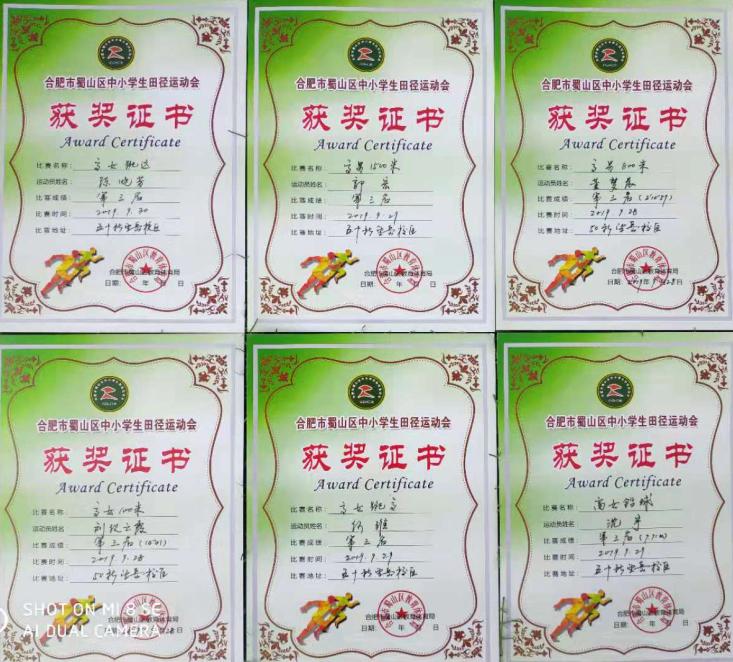 合肥市蜀山区中小学生田径运动会
获奖证书
Award Certificate
比赛名称：高女跳远
运动员姓名
比赛成绩：第三名
比赛时间：2019.9.30
比赛地址：五十新
合肥市蜀山区教育体育局
日期： 年 月 日
合肥市蜀山区中小学生田径运动会
获奖证书
Award Certificate
比赛名称：高男1500米
运动员姓名
比赛成绩：第三名
比赛时间：2019.9.29
比赛地址：五十新
合肥市蜀山区教育体育局
日期： 年 月 日
合肥市蜀山区中小学生田径运动会
获奖证书
Award Certificate
比赛名称：高男800米
运动员姓名
比赛成绩：第三名
比赛时间：2019.9.28
比赛地址：50新
合肥市蜀山区教育体育局
日期：2019年9月28日
合肥市蜀山区中小学生田径运动会
获奖证书
Award Certificate
比赛名称：高女100米
运动员姓名
比赛成绩：第三名
比赛时间：2019.9.28
比赛地址：50新
合肥市蜀山区中小学生田径运动会
获奖证书
Award Certificate
比赛名称：高女跳高
运动员姓名
比赛成绩：第三名
比赛时间：2019.9.29
比赛地址：五十新
合肥市蜀山区教育体育局
日期： 年 月 日
合肥市蜀山区中小学生田径运动会
获奖证书
Award Certificate
比赛名称：高女铅球
运动员姓名
比赛成绩：第三名
比赛时间：2019.9.29
比赛地址：五十新
合肥市蜀山区教育体育局
日期： 年 月 日
SHOT ON MI 8 SE
AI DUAL CAMERA